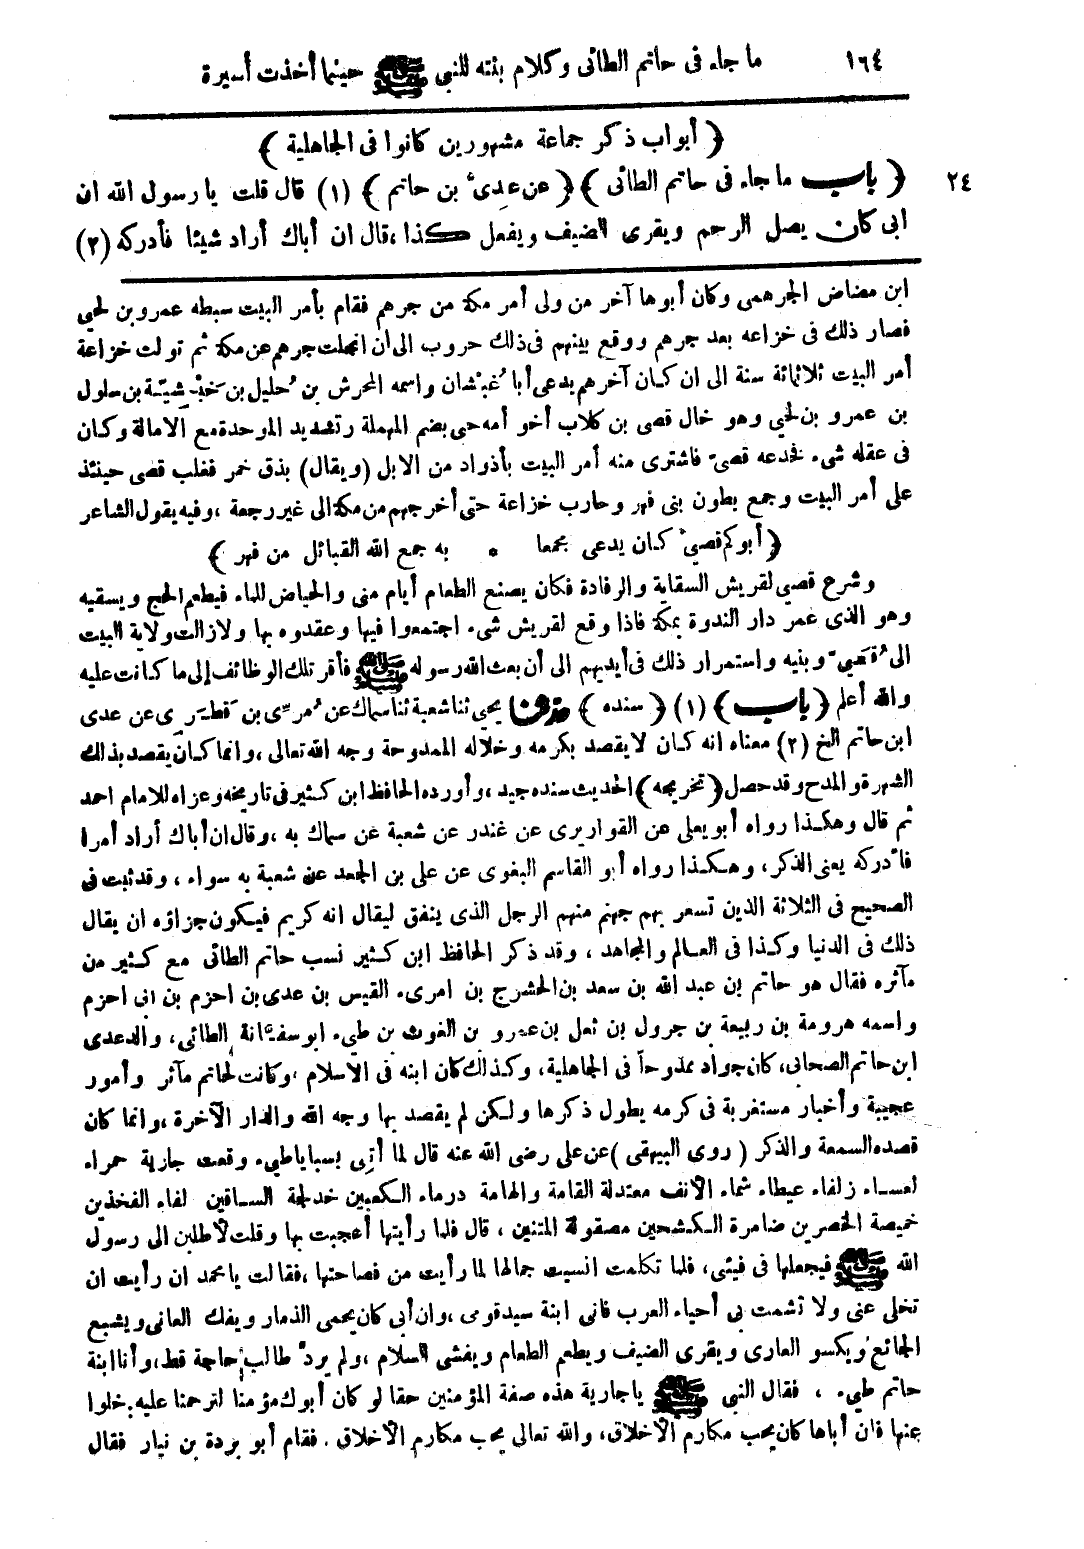 ١٦٤ ما جاء فى حاتم الطائى وكلام بنته للنبى ﷺ حينما أخذت أسيرة
﴿ أبواب ذكر جماعة مشهورين كانوا فى الجاهلية ﴾
٢٤ ﴿ باب ما جاء فى حاتم الطائى ﴾ ﴿ عن عدىّ بن حاتم ﴾ (١) قال قلت يا رسول الله ان
ابى كان يصل الرحم ويقرى الضيف ويفعل كذا، قال ان أباك أراد شيئا فأدركه (٢)
ابن مضاض الجرهمى وكان أبوها آخر من ولى أمر مكة من جرهم فقام بأمر البيت سبطه عمرو بن لحى
فصار ذلك فى خزاعه بعد جرهم ووقع بينهم فى ذلك حروب الى أن انجلت جرهم عن مكة ثم تولت خزاعة
أمر البيت ثلاثمائة سنة الى ان كان آخرهم يدعى أبا غُبشان واسمه المحرش بن حُليل بن حَبْشيّة بن سلول
بن عمرو بن لحى وهو خال قصى بن كلاب أخو أمه حبى بضم المهملة وتشديد الموحدة مع الامالة وكان
فى عقله شىء فخدعه قصىّ فاشترى منه أمر البيت بأذواد من الابل (ويقال) بذق خمر فغلب قصى حينئذ
على أمر البيت وجمع بطون بنى فهر وحارب خزاعة حتى أخرجهم من مكة الى غير رجعة، وفيه يقول الشاعر
﴿ أبوكم قصىّ كان يدعى مجمعا * به جمع الله القبائل من فهر ﴾
وشرع قصى لقريش السقاية والرفادة فكان يصنع الطعام أيام منى والحياض للماء فيطعم الحج ويسقيه
وهو الذى عمر دار الندوة بمكة فاذا وقع لقريش شىء اجتمعوا فيها وعقدوه بها ولازالت ولاية البيت
الى قُصَىّ وبنيه واستمرار ذلك فى أيديهم الى أن بعث الله رسوله ﷺ فأقر تلك الوظائف إلى ما كانت عليه
والله أعلم ﴿ باب ﴾ (١) ﴿ سنده ﴾ حدثنا يحيى ثنا شعبة ثنا سماك عن مُرىّ بن قطرى عن عدى
ابن حاتم الخ (٢) معناه انه كان لا يقصد بكرمه وخلاله الممدوحة وجه الله تعالى، وانما كان يقصد بذلك
الشهرة والمدح وقد حصل ﴿ تخريجه ﴾ الحديث سنده جيد، وأورده الحافظ ابن كثير فى تاريخه وعزاه للامام احمد
ثم قال وهكذا رواه أبو يعلى عن القواريرى عن غندر عن شعبة عن سماك به، وقال ان أباك أراد أمرا
فأدركه يعنى الذكر، وهكذا رواه أبو القاسم البغوى عن على بن الجعد عن شعبة به سواء، وقد ثبت فى
الصحيح فى الثلاثة الذين تسعر بهم جهنم منهم الرجل الذى ينفق ليقال انه كريم فيكون جزاؤه ان يقال
ذلك فى الدنيا وكذا فى العالم والمجاهد، وقد ذكر الحافظ ابن كثير نسب حاتم الطائى مع كثير من
مآثره فقال هو حاتم بن عبد الله بن سعد بن الحشرج بن امرىء القيس بن عدى بن احزم بن ابى احزم
واسمه هرومة بن ربيعة بن جرول بن ثعل بن عمرو بن الغوث بن طىء ابو سفّانة الطائى، والد عدى
ابن حاتم الصحابى، كان جواد ممدوحاً فى الجاهلية، وكذلك كان ابنه فى الاسلام، وكانت لحاتم مآثر وأمور
عجيبة وأخبار مستغربة فى كرمه يطول ذكرها ولكن لم يقصد بها وجه الله والدار الآخرة، وانما كان
قصده السمعة والذكر (روى البيهقى) عن على رضى الله عنه قال لما أتى بسبايا طىء وقعت جارية حمراء
لعساء زلفاء عيطاء شماء الأنف معتدلة القامة والهامة درماء الكعبين خدلجة الساقين لفاء الفخذين
خميصة الخصرين ضامرة الكشحين مصقولة المتنين، قال فلما رأيتها أعجبت بها وقلت لأطلبن الى رسول
الله ﷺ فيجعلها فى فيئى، فلما تكلمت انسيت جمالها لما رأيت من فصاحتها، فقالت يا محمد ان رأيت ان
تخلى عنى ولا تشمت بى أحياء العرب فانى ابنة سيد قومى، وان أبى كان يحمى الذمار ويفك العانى ويشبع
الجائع ويكسو العارى ويقرى الضيف ويطعم الطعام ويفشى السلام، ولم يردّ طالب حاجة قط، وأنا ابنة
حاتم طىء، فقال النبى ﷺ يا جارية هذه صفة المؤمنين حقا لو كان أبوك مؤمنا لترحمنا عليه، خلوا
عنها فان أباها كان يحب مكارم الأخلاق، والله تعالى يحب مكارم الأخلاق. فقام أبو بردة بن نيار فقال